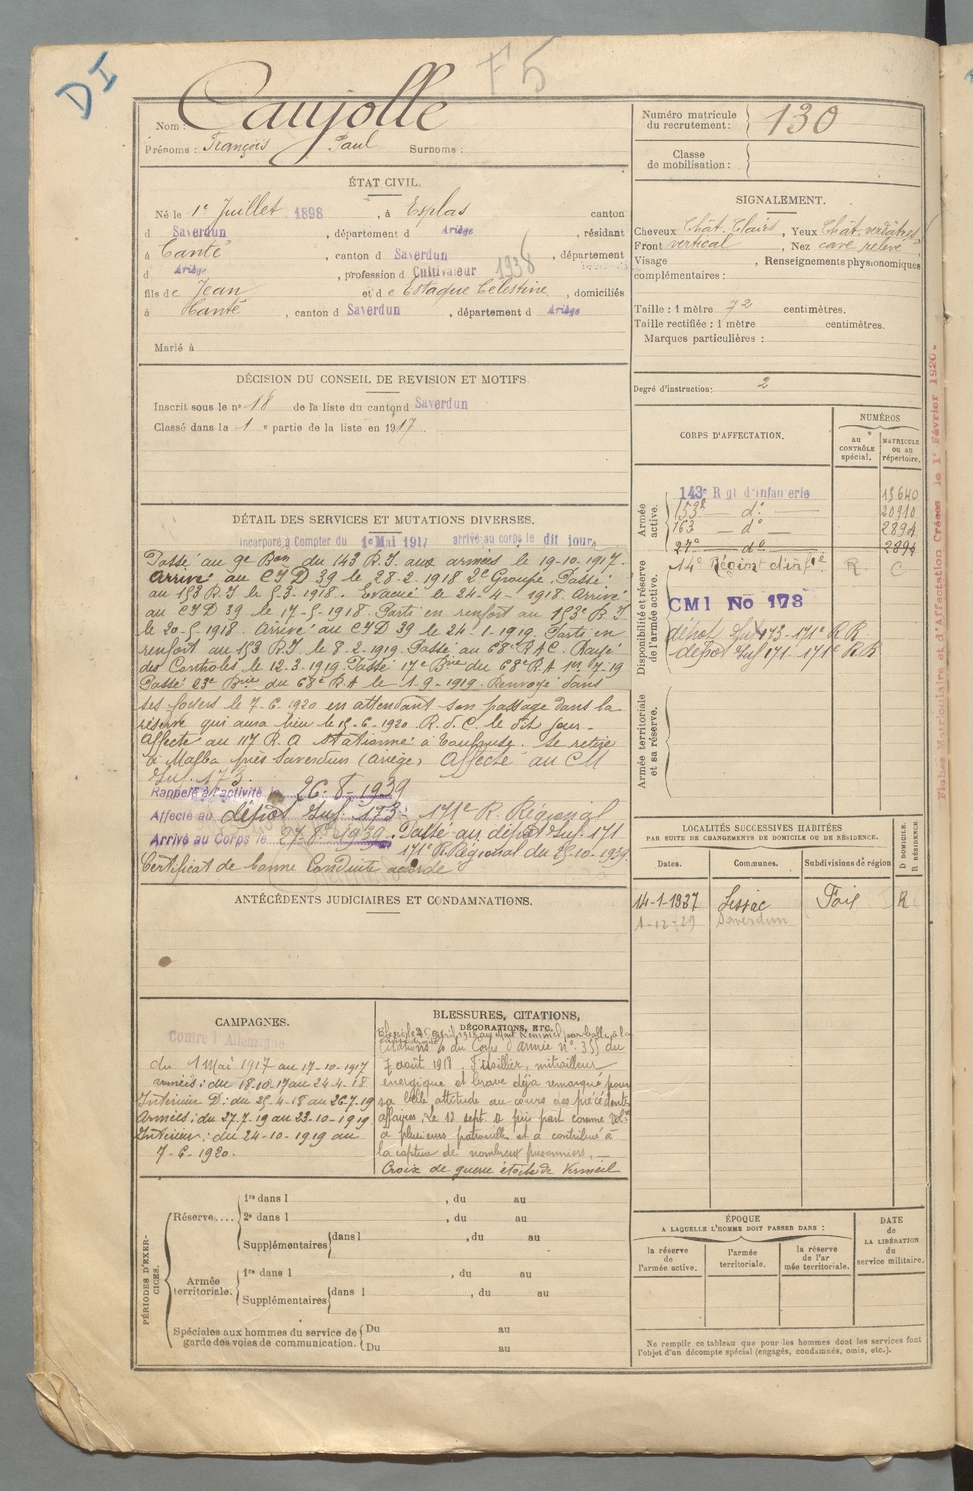 DI
F5
Nom : Caujolle
Prénoms : François Paul Surnoms :
Numéro matricule du recrutement : 130
Classe de mobilisation :
ÉTAT CIVIL.
Né le 1er Juillet 1898, à Esplas canton
d Saverdun, département d Ariège, résidant
à Canté, canton d Saverdun, département
d Ariège, profession d Cultivateur 1938
fils de Jean et de Estaque Célestine, domiciliés
à Canté, canton d Saverdun, département d Ariège
Marié à
SIGNALEMENT.
Cheveux Chât. Clairs, Yeux Chât. verdâtres
Front vertical, Nez cave relevé
Visage , Renseignements physionomiques
complémentaires :
Taille : 1 mètre 72 centimètres.
Taille rectifiée : 1 mètre centimètres.
Marques particulières :
Degré d'instruction : 2
DÉCISION DU CONSEIL DE REVISION ET MOTIFS.
Inscrit sous le n° 18 de la liste du canton d Saverdun
Classé dans la 1e partie de la liste en 1917.
DÉTAIL DES SERVICES ET MUTATIONS DIVERSES.
Incorporé à Compter du 1e Mai 1917 arrivé au corps le dit jour.
Passé au 9e Bon du 143 R.I. aux armées le 19-10-1917.
Arrivé au CID 39 le 28-2-1918 2e Groupe. Passé
au 153 R.I le 5-3-1918. Evacué le 24-4-1918. Arrivé
au CID 39 le 17-5-1918. Parti en renfort au 153e R.I
le 20-5-1918. Arrivé au CID 39 le 24-1-1919. Parti en
renfort au 153 R.I. le 8-2-1919. Passé au 68e RAC. Rayé
des Contrôles le 12.3.1919. Passé 17e Brie du 68e R.A 1er/7-19
Passé 23e Brie du 68e R.A le 1-9-1919. Renvoyé dans
ses foyers le 7-6-1920 en attendant son passage dans la
réserve qui aura lieu le 15-6-1920. R.d.C. le dit jour.
Affecté au 117 R.A stationné à Toulouse. Se retire
à Malba près Saverdun (Ariège) Affecté au CM
Inf. 173.
Rappelé à l'activité le 26-8-1939
Affecté au dépôt Inf. 173 - 171e R. Régional
Arrivé au Corps le 27.8.1939. Passé au dépôt Inf. 171
171e R. Régional du 25-10-1939.
Certificat de bonne Conduite accordé
CORPS D'AFFECTATION.
NUMÉROS
au CONTRÔLE spécial.
MATRICULE ou au répertoire.
Armée active.
143e Rgt d'infanterie 13640
153e d° 20910
163 d° 2894
27e d° 2894
Disponibilité et réserve de l'armée active.
14e Régimt d'infie R C
CMI No 173
dépôt Inf 173-171e R R
dépôt Inf 171 - 171e RR
Armée territoriale et sa réserve.
Fiches Matriculaire et d'Affectation Créées le 1er Février 1920.
LOCALITÉS SUCCESSIVES HABITÉES
PAR SUITE DE CHANGEMENTS DE DOMICILE OU DE RÉSIDENCE.
Dates. Communes. Subdivisions de région D DOMICILE. R RÉSIDENCE
14-1-1937 Lissac Foix R
1-12-29 Saverdun
ANTÉCÉDENTS JUDICIAIRES ET CONDAMNATIONS.
CAMPAGNES.
Contre l'Allemagne
du 1 Mai 1917 au 17-10-1917
armées : du 18-10-17 au 24-4-18
Intérieur D : du 25-4-18 au 26-7-19
Armées : du 27.7.19 au 23-10-1919
Intérieur : du 24-10-1919 au
7-6-1920.
BLESSURES, CITATIONS, DÉCORATIONS, ETC.
Citations à du Corps d'armée n° 355 du
7 août 1918, Fusillier, mitrailleur
énergique et brave déjà remarqué pour
sa belle attitude au cours des précédentes
affaires. Le 12 sept. a pris part comme volre
à plusieurs patrouilles et a contribué à
la capture de nombreux prisonniers. —
Croix de guerre étoile de Vermeil
PÉRIODES D'EXERCICES.
Réserve.... 1re dans l , du au
2e dans l , du au
Supplémentaires dans l , du au
Armée territoriale. 1re dans l , du au
Supplémentaires dans l , du au
Spéciales aux hommes du service de garde des voies de communication. Du au
Du au
ÉPOQUE
A LAQUELLE L'HOMME DOIT PASSER DANS :
la réserve de l'armée active.
l'armée territoriale.
la réserve de l'armée territoriale.
DATE de LA LIBÉRATION du service militaire.
Ne remplir ce tableau que pour les hommes dont les services font
l'objet d'un décompte spécial (engagés, condamnés, omis, etc.).